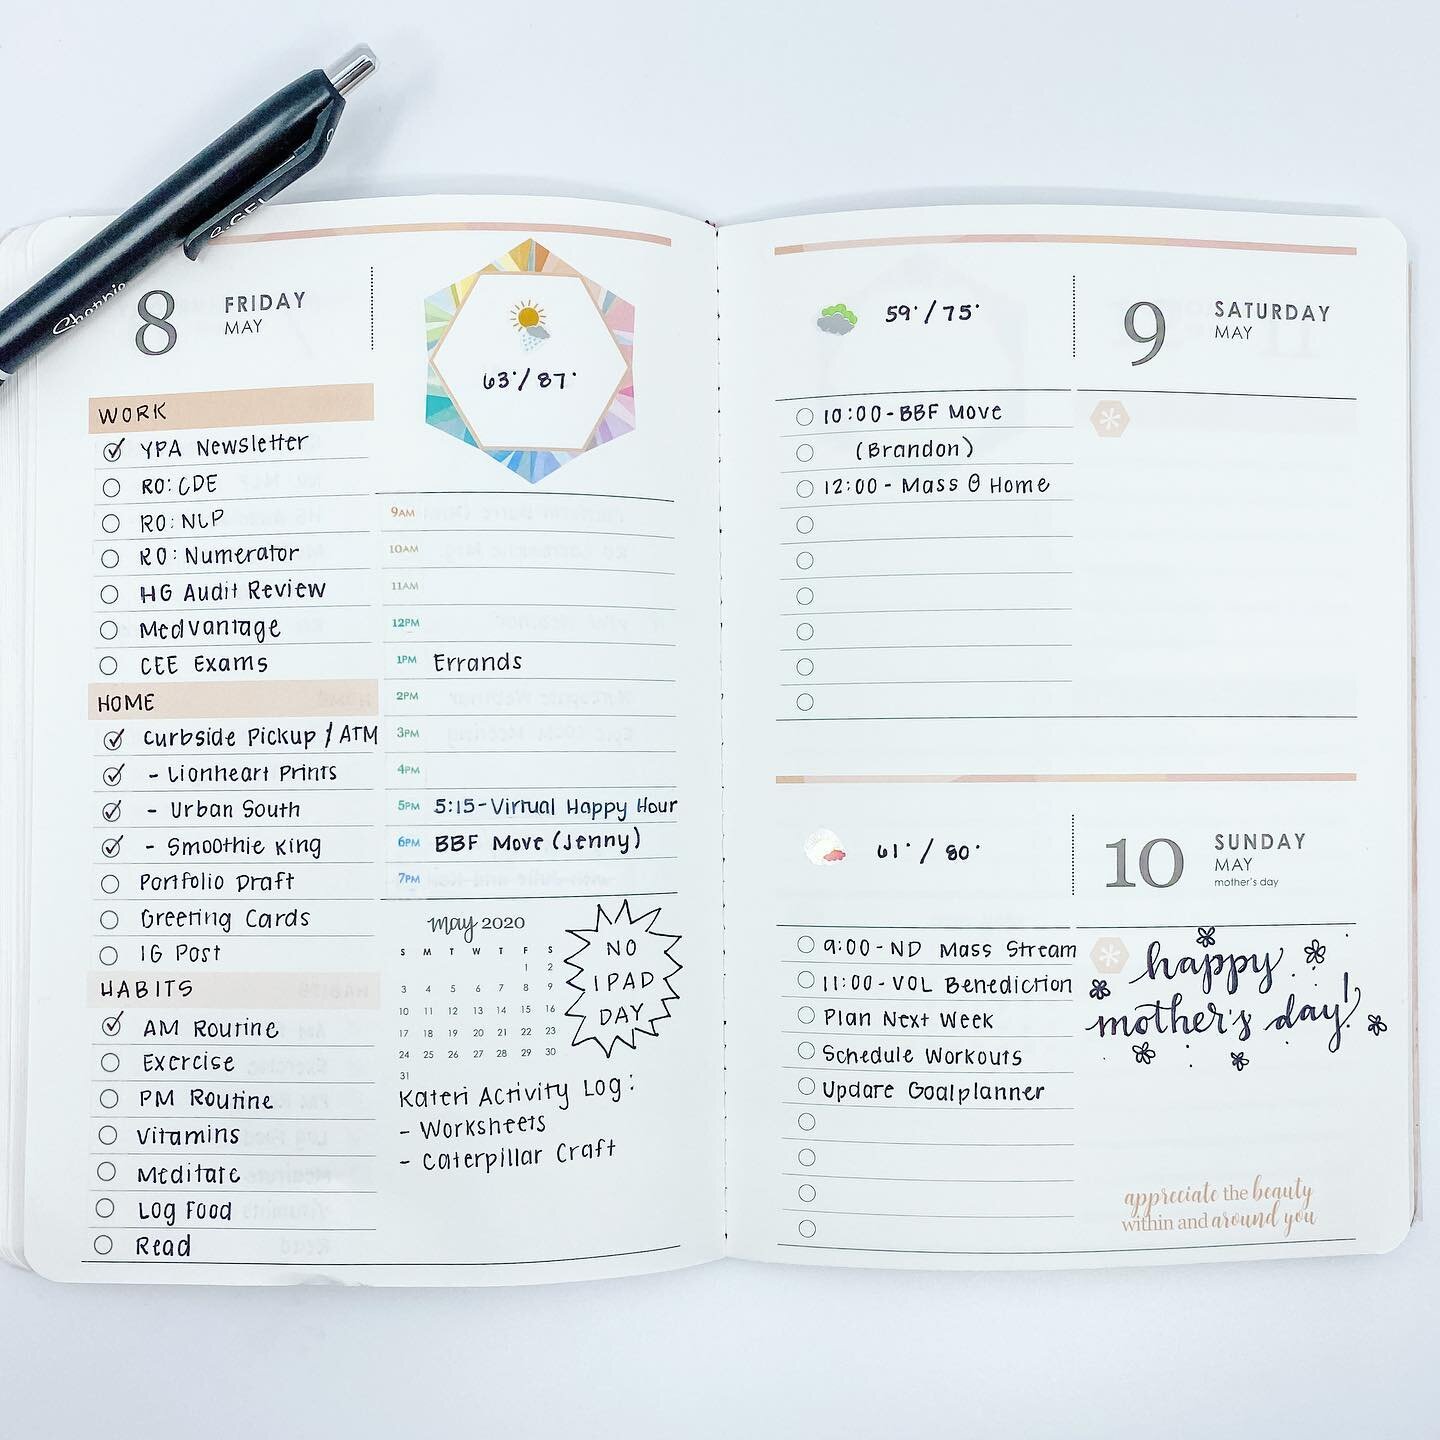 Sharpie
S·GEL
8
FRIDAY
MAY
63°/87°
WORK
YPA Newsletter
RO: CDE
RO: NLP
RO: Numerator
HG Audit Review
Medvantage
CEE Exams
HOME
Curbside Pickup / ATM
- Lionheart Prints
- Urban South
- Smoothie King
Portfolio Draft
Greeting Cards
IG Post
HABITS
AM Routine
Exercise
PM Routine
Vitamins
Meditate
Log Food
Read
9AM
10AM
11AM
12PM
1PM Errands
2PM
3PM
4PM
5PM 5:15-Virtual Happy Hour
6PM BBF Move (Jenny)
7PM
may 2020
S M T W T F S
1 2
3 4 5 6 7 8 9
10 11 12 13 14 15 16
17 18 19 20 21 22 23
24 25 26 27 28 29 30
31
NO
IPAD
DAY
Kateri Activity Log:
- Worksheets
- Caterpillar Craft
59°/75°
9
SATURDAY
MAY
10:00-BBF Move
(Brandon)
12:00- Mass @ Home
61°/80°
10
SUNDAY
MAY
mother's day
9:00-ND Mass Stream
11:00-VOL Benediction
Plan Next Week
Schedule Workouts
Update Goalplanner
happy
mother's day!
appreciate the beauty
within and around you